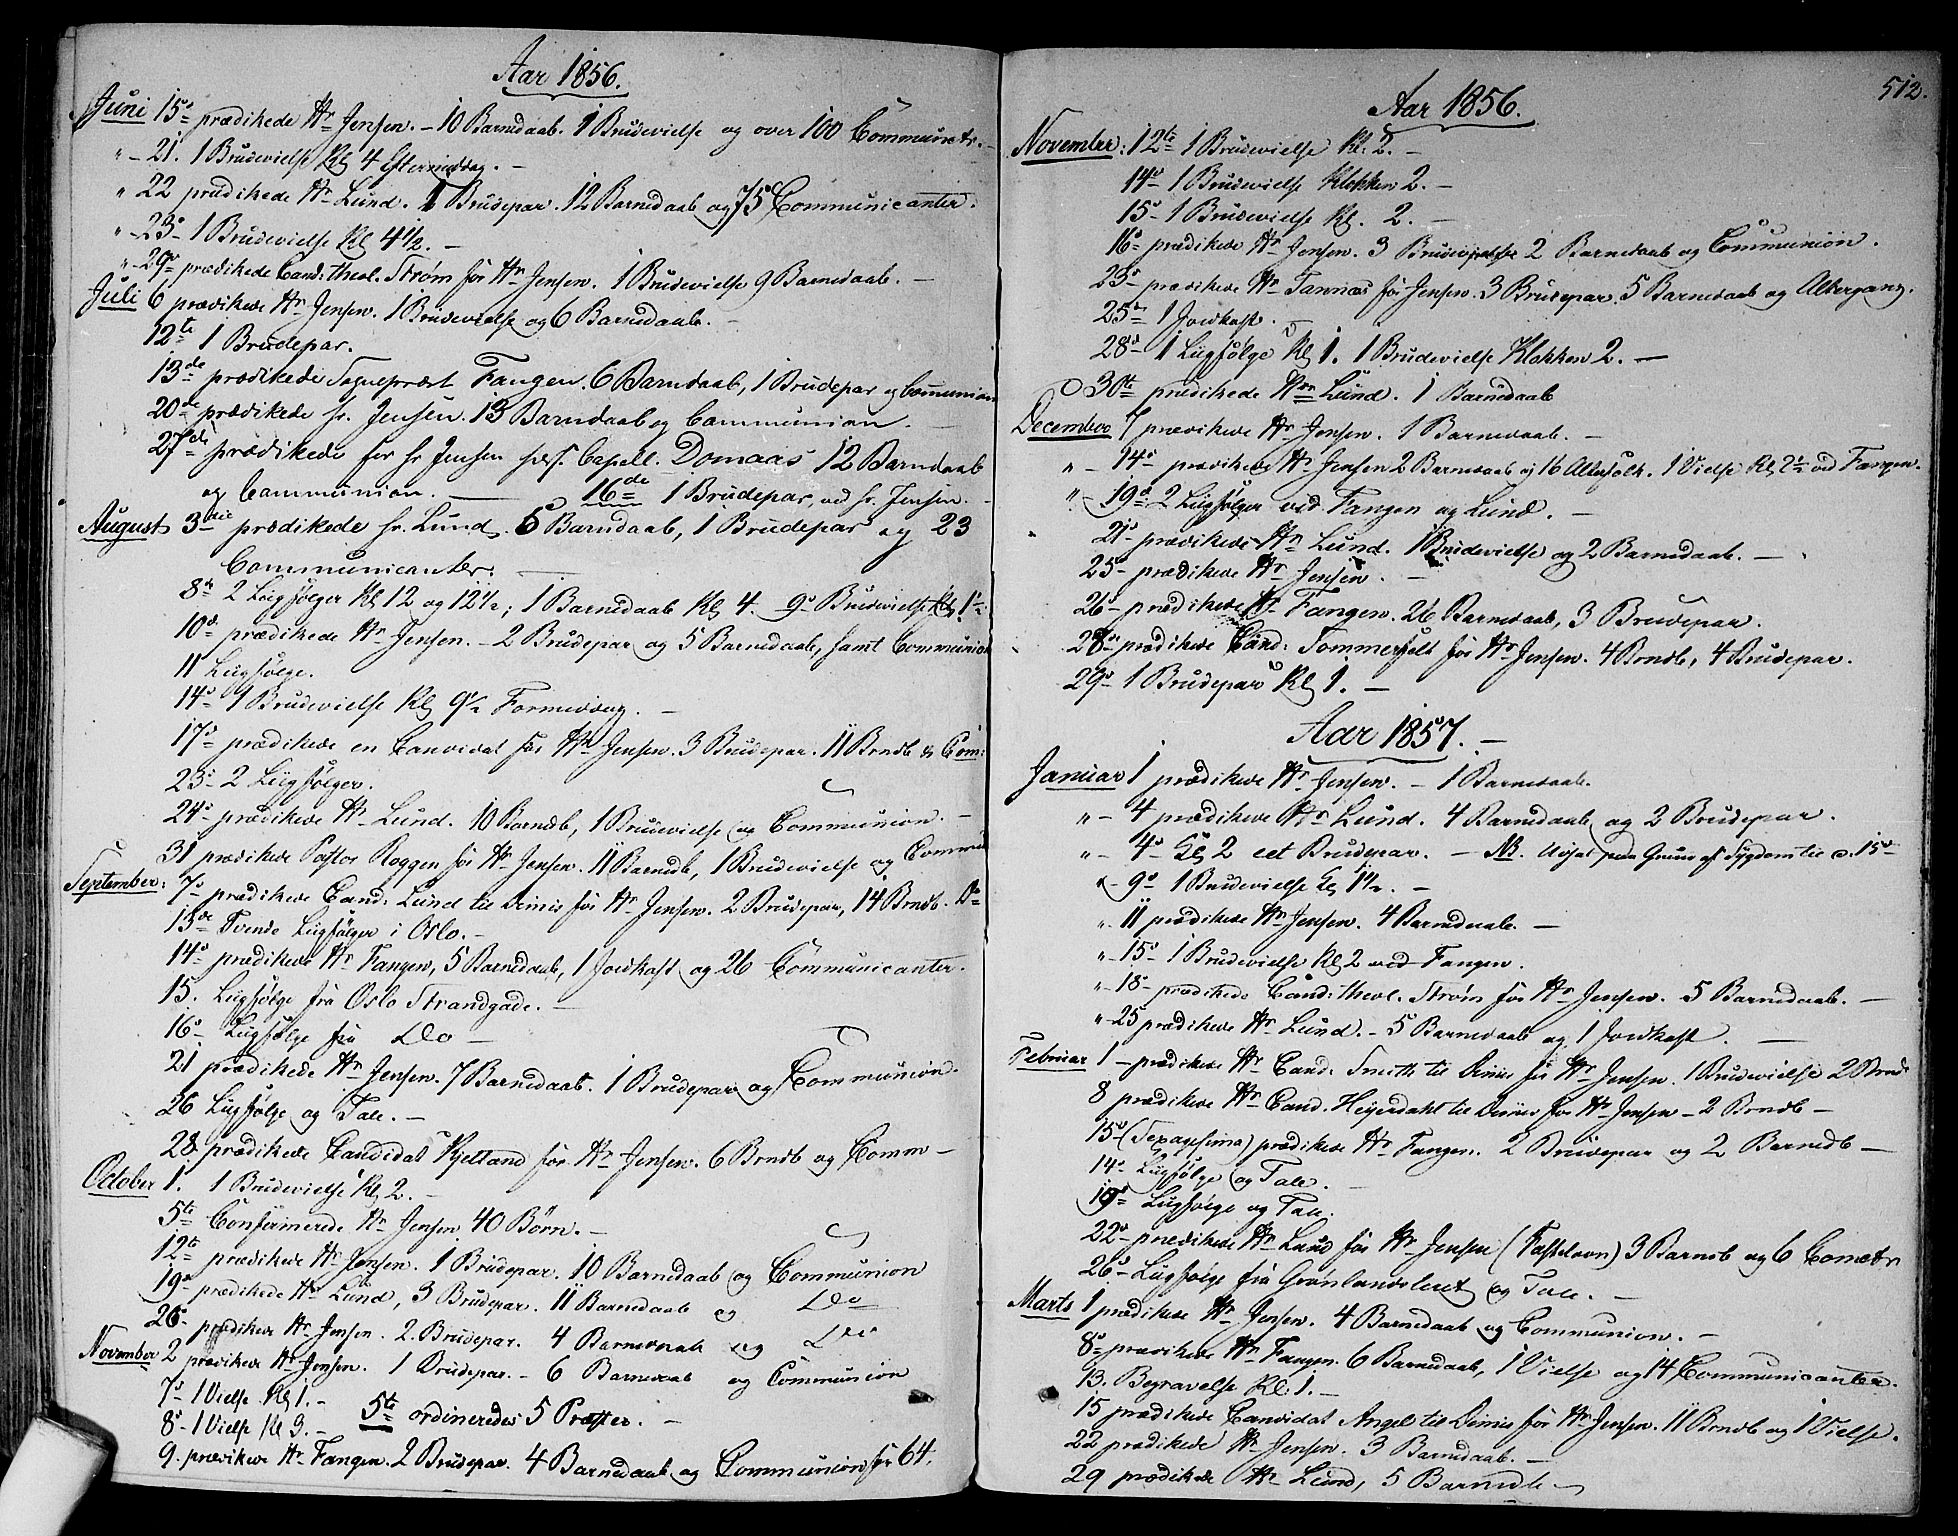 Aar 1856.
Juni 15de prædikede Hr Jensen. – 10 Barnedaab. 1 Brudevielse og over 100 Communctr. –
" – 21. 1 Brudevielse Kl 4 Eftermiddag. –
" 22 prædikede Hr Lund. 1 Brudepar. 12 Barnedaab og 75 Communicanter.
" – 23de – 1 Brudevielse Kl 4½. –
" – 29de prædikede Cand: theol. Strøm for Hr Jensen. 1 Brudevielse 9 Barnedaab. –
Juli 6 prædikede Hr Jensen. 1 Brudevielse og 6 Barnedaab. –
12te 1 Brudepar.
13de prædikede Sognepræst Fangen. 6 Barndaab, 1 Brudepar og Communion
20de prædikede hr. Jensen. 13 Barndaab og Communion. –
27de prædikede for hr Jensen pers. Capell. Domaas 12 Barndaab
og Communion. – 16de 1 Brudepar, ved hr. Jensen. –
August 3die prædikede hr. Lund. 5 Barndaab, 1 Brudepar og 23
Communicanter. –
8de 2 Liigfølger Kl 12 og 12½; 1 Barnedaab Kl 4. 9de Brudevielse Kl 1½.
10de prædikede Hr Jensen. – 2 Brudepar og 5 Barnedaab, samt Communion
11 Liigfølge.
14de 1 Brudevielse Kl 9½ Formiddag. –
17de prædikede en Candidat for Hr Jensen. 3 Brudepar. 11 Brndb & Com:
23de 2 Liigfølger.
24de prædikede Hr Lund. 10 Barndb, 1 Brudevielse og Communion. –
31 prædikede Pastor Roggen for Hr Jensen. 11 Barndb, 1 Brudevielse og Commu
September: 7de prædikede Cand: Lund til Dimis for Hr Jensen. 2 Brudepar, 14 Brndb. Do
13de Tvende Liigfølger i Oslo. –
14de prædikede Hr Fangen, 5 Barnedaab, 1 Jordkast og 26 Communicanter.
15. Liigfølge fra Oslo Strandgade. –
16de Liigfølge fra Do –
21 prædikede Hr Jensen. 7 Barnedaab. 1 Brudepar og Communion.
26 Liigfølge og Tale. –
28 prædikede Candidat Kjelland for Hr Jensen. 6 Brndb og Comm –
October 1. 1 Brudevielse Kl 2. –
5te Confirmerede Hr Jensen 40 Børn. –
12te prædikede Hr Jensen. 1 Brudepar. 10 Barnedaab og Communion
19de prædikede Hr Lund, 3 Brudepar. 11 Barnedaab og Do
26de prædikede Hr Jensen. 2. Brudepar. 4 Barnedaab og Do
November 2 prædikede Hr Jensen. 1 Brudepar. – 6 Barnedaab og Communion
7de 1 Vielse Kl 1. –
8de 1 Vielse Kl 3. – 5te ordineredes 5 Præster. –
9. prædikede Hr Fangen. 2 Brudepar. 4 Barnedaab og Communion for 64.
512.
Aar 1856.
November: 12te 1 Brudevielse Kl. 2. –
14de 1 Brudevielse Klokken 2. –
15de 1 Brudevielse Kl. 2. –
16de prædikede Hr Jensen. 3 Brudevielse 2 Barnedaab og Communion.
23de prædikede Hr Tannæs for Jensen. 3 Brudepar. 5 Barnedaab og Altergang.
25de 1 Jordkast. –
28de 1 Liigfølge Kl 1. 1 Brudevielse Klokken 2. –
30te prædikede Hrr Lund. 1 Barnedaab
December 7 prædikede Hr Jensen. 1 Barnedaab. –
" – 14de prædikede Hr Jensen 2 Barnedaab og 16 Alterfolk. 1 Vielse Kl 2½ ved Fangen.
" – 19de 2 Liigfølger ved Fangen og Lund. –
21de prædikede Hr Lund. 1 Brudevielse og 2 Barnedaab. –
25de prædikede Hr Jensen. –
26de prædikede Hr Fangen. 26 Barnedaab, 3 Brudepar.
28de prædikede Cand: Sommerfelt for Hr Jensen. 4 Brndb, 4 Brudepar.
29de 1 Brudepar Kl 1. –
Aar 1857. –
Januar 1 prædikede Hr Jensen. – 1 Barnedaab.
" – 4 prædikede Hr Lund. 4 Barnedaab og 2 Brudepar.
" – 4de Kl 2 eet Brudepar. – NB. Udsat paa Grund af Sygdom til d. 15de
" – 9de 1 Brudevielse Kl 1½. –
" 11 prædikede Hr Jensen. 4 Barnedaab. –
" – 15de 1 Brudevielse Kl 2 ved Fangen.
" – 18de prædikede Cand: theol. Strøm for Hr Jensen. 5 Barnedaab. –
" – 25 prædikede Hr Lund. – 5 Barnedaab og 1 Jordkast. –
Februar 1 – prædikede Hr Cand: Smith til Dimis for Hr Jensen. 1 Brudevielse 2 Brndb
8 prædikede Hr Cand. Heyerdahl til Dimis for Hr Jensen – 2 Brndb –
15de (Sexagesima) prædikede Hr Fangen. 2 Brudepar og 2 Barnedb –
14de Liigfølge og Tale. –
19de Liigfølge og Tale.
22de prædikede Hr Lund for Hr Jensen (Fastelavn) 3 Barndb og 6 Comctr
26de Liigfølge fra Grønlandsleret og Tale. –
Marts 1 prædikede Hr Jensen. 4 Barnedaab og Communion. –
8de prædikede Hr Fangen. 6 Barnedaab, 1 Vielse og 14 Communicanter.
13. Begravelse Kl. 1. –
15 prædikede Candidat Angel til Dimis for Hr Jensen. 11 Brndb og 1 Vielse.
22 prædikede Hr Jensen. 3 Barndaab. –
29 prædikede Hr Lund, 5 Barnedb –